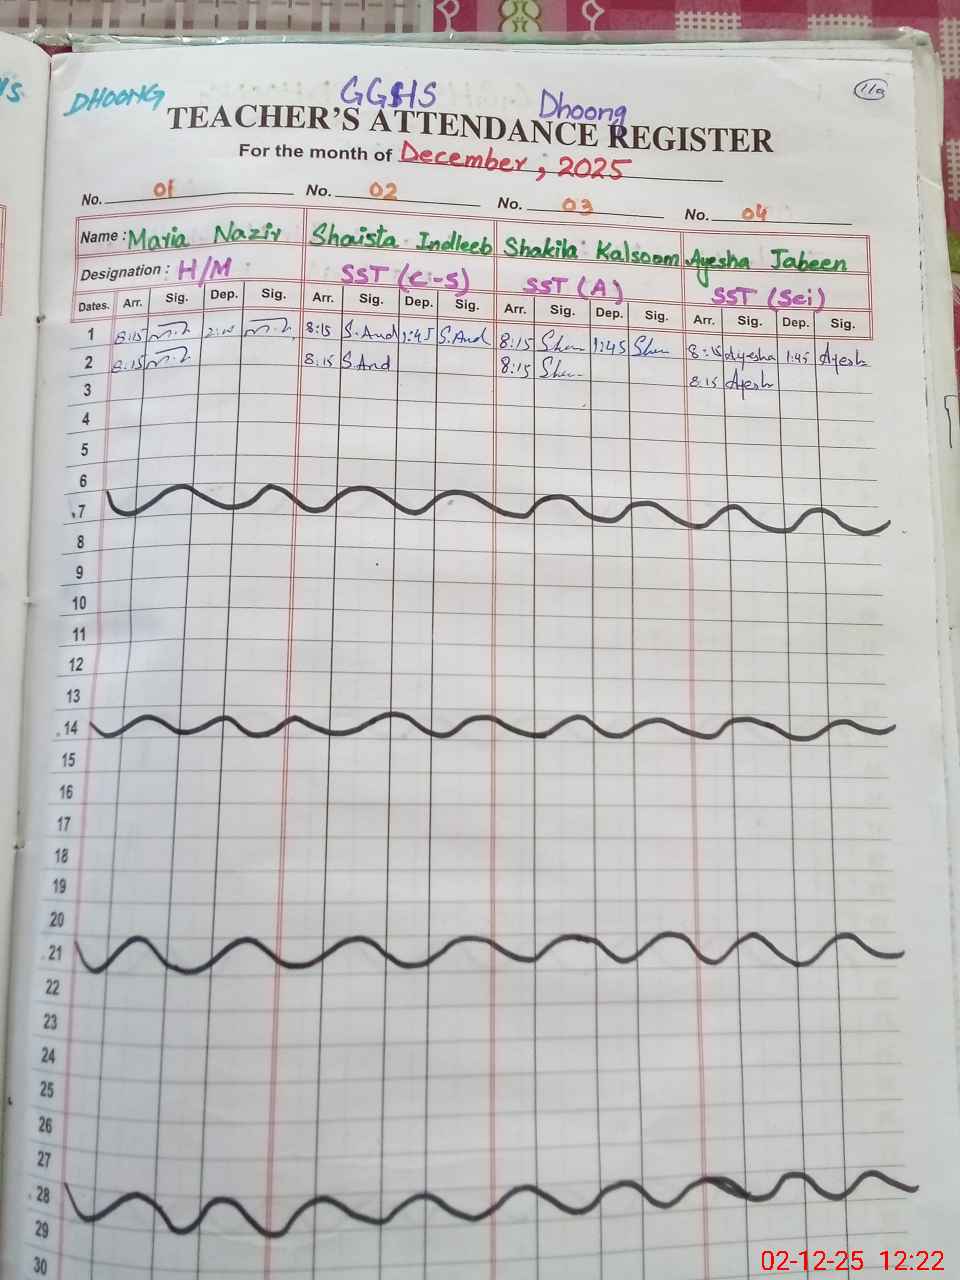 DHOONG GGHS Dhoong
TEACHER'S ATTENDANCE REGISTER
For the month of December, 2025
No. 01 No. 02 No. 03 No. 04
Name : Maria Nazir Shaista Indleeb Shakila Kalsoom Ayesha Jabeen
Designation : H/M SST (C-S) SST (A) SST (Sci)
Dates. Arr. Sig. Dep. Sig. Arr. Sig. Dep. Sig. Arr. Sig. Dep. Sig. Arr. Sig. Dep. Sig.
1 8:15 8:15 S.And 1:45 S.And 8:15 1:45 8:15 Ayesha 1:45 Ayesh
2 8:15 8:15 S.And 8:15 8:15 Ayesh
3
4
5
6
7
8
9
10
11
12
13
14
15
16
17
18
19
20
21
22
23
24
25
26
27
28
29
30
02-12-25 12:22